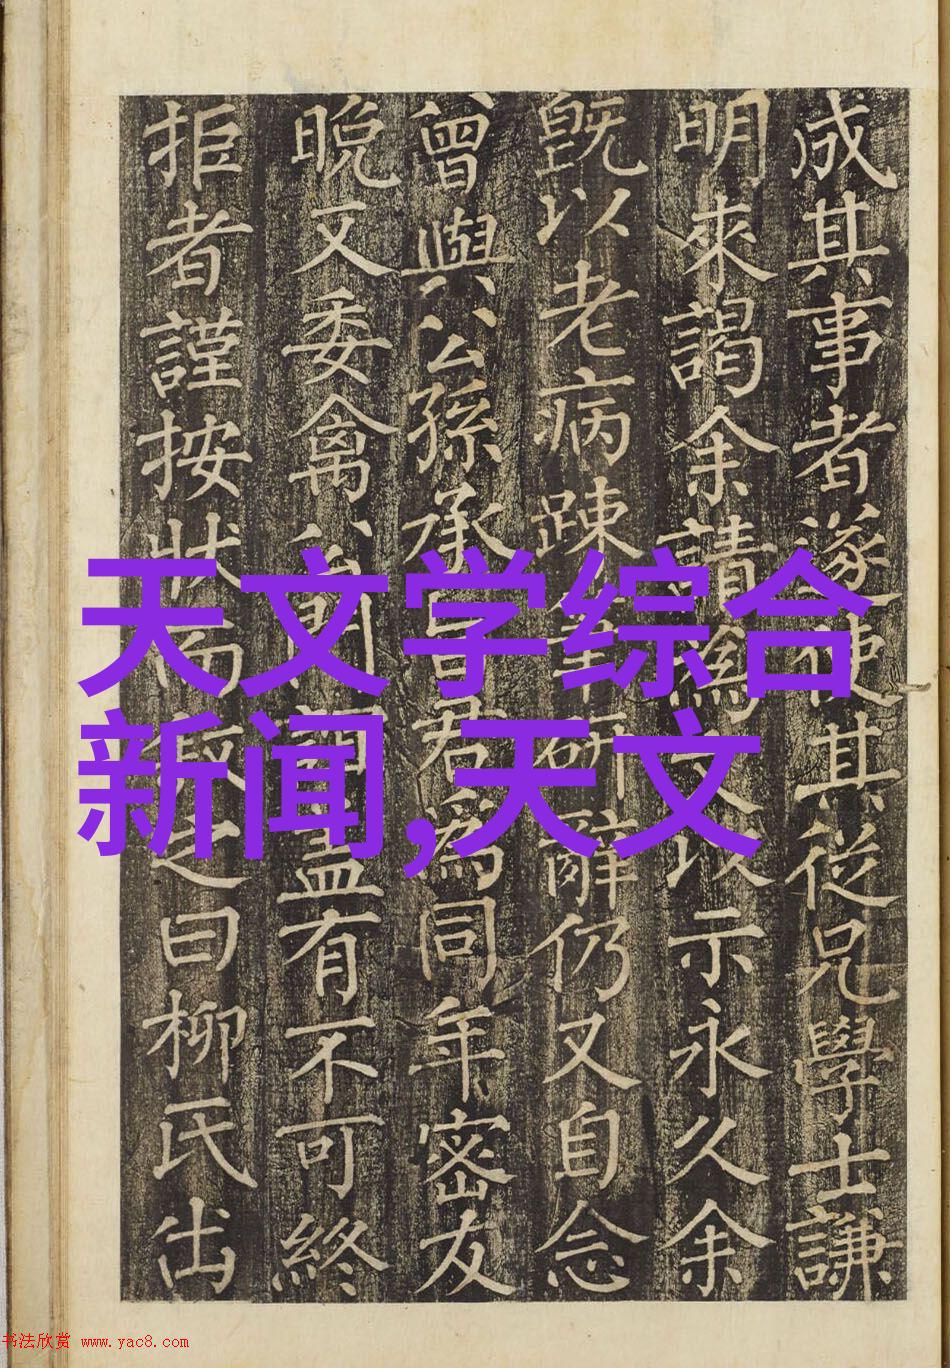 成其事者遂使其從兄學士謙
明來謁余請為文以示永久余
既以老病踈研辭仍又自念
曾與公孫承旨君為同年密友
晚又委禽公門盖有不可終
拒者謹按狀而叙之曰柳氏出
天文学综合
新闻,天文
书法欣赏 www.yac8.com